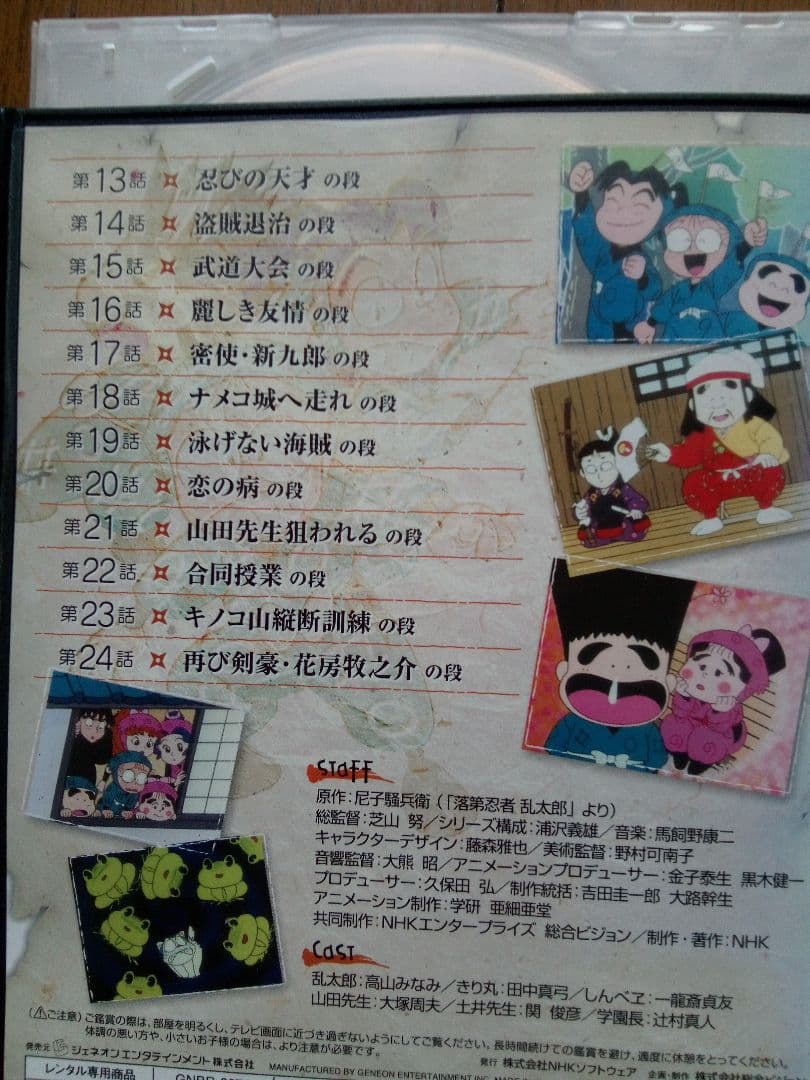 第13話 忍びの天才 の段
第14話 盗賊退治 の段
第15話 武道大会 の段
第16話 麗しき友情 の段
第17話 密使・新九郎 の段
第18話 ナメコ城へ走れ の段
第19話 泳げない海賊 の段
第20話 恋の病 の段
第21話 山田先生狙われる の段
第22話 合同授業 の段
第23話 キノコ山縦断訓練 の段
第24話 再び剣豪・花房牧之介 の段
STAFF
原作：尼子騒兵衛（「落第忍者 乱太郎」より）
総監督：芝山 努／シリーズ構成：浦沢義雄／音楽：馬飼野康二
キャラクターデザイン：藤森雅也／美術監督：野村可南子
音響監督：大熊 昭／アニメーションプロデューサー：金子泰生 黒木健一
プロデューサー：久保田 弘／制作統括：吉田圭一郎 大路幹生
アニメーション制作：学研 亜細亜堂
共同制作：NHKエンタープライズ 総合ビジョン／制作・著作：NHK
CAST
乱太郎：高山みなみ／きり丸：田中真弓／しんべヱ：一龍斎貞友
山田先生：大塚周夫／土井先生：関 俊彦／学園長：辻村真人
（⚠ご注意）ご鑑賞の際は、部屋を明るくし、テレビ画面に近づき過ぎないようにしてご覧ください。長時間続けての鑑賞を避け、適度に休憩をとってください。
体調の悪い方や、小さいお子様の場合は、より注意が必要です。
発売元 ジェネオン エンタテインメント株式会社 MANUFACTURED BY GENEON ENTERTAINMENT INC. 発行 株式会社NHKソフトウェア 企画・制作
レンタル専用商品